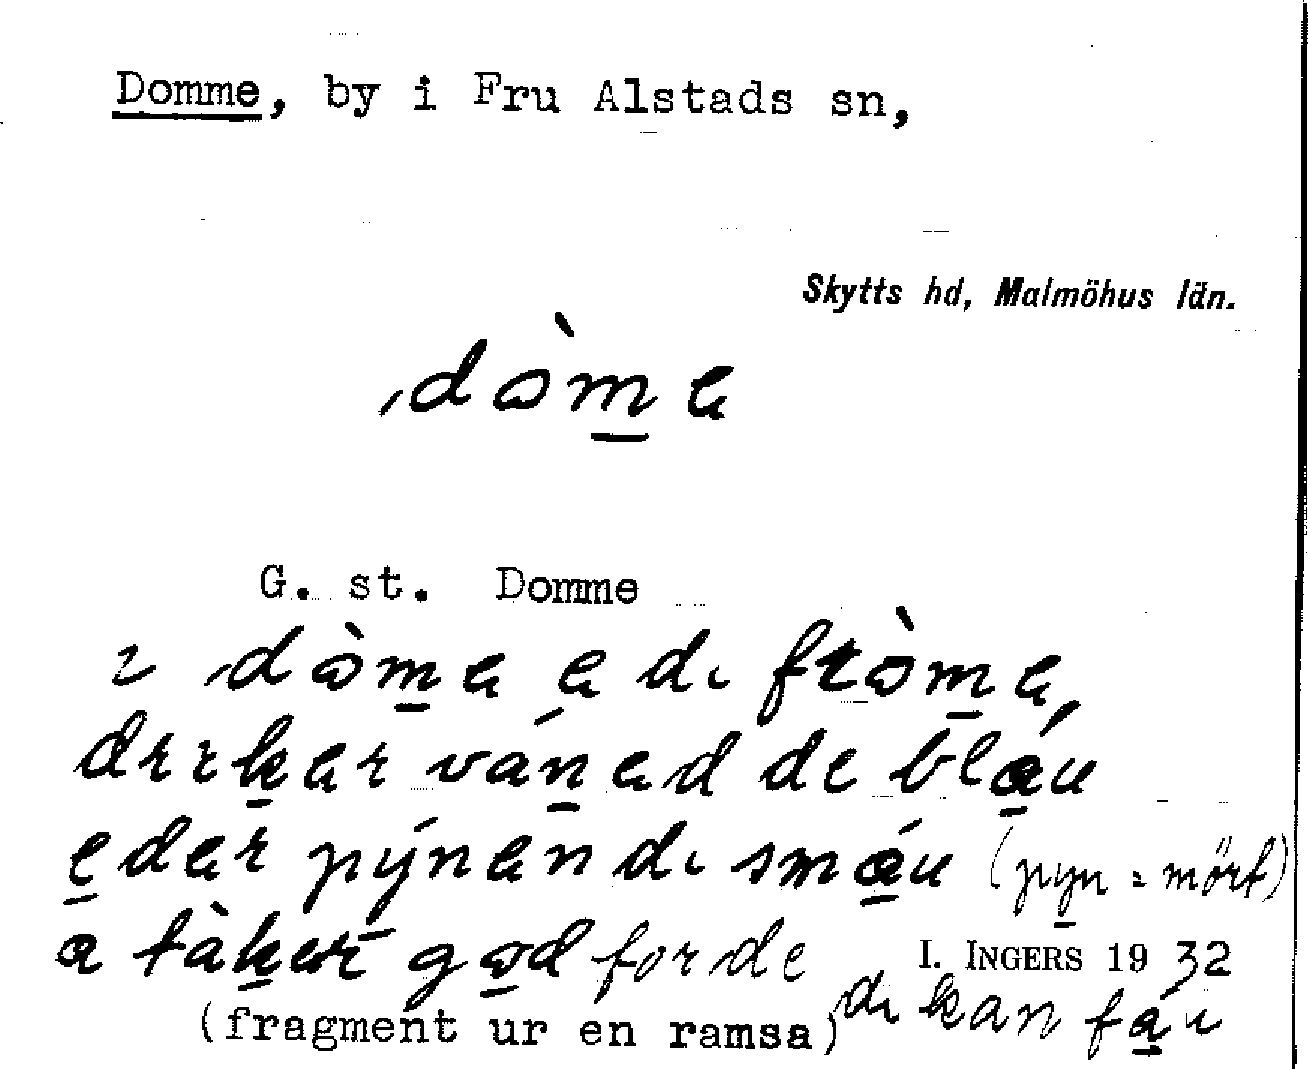 Domme, by i Fru Alstads sn,
Skytts hd, Malmöhus län.
dòm̲a
G. st. Domme
ɩ dòm̲a a di fròm̲a,
drɩk̲ar ván̲ad de blá̲u
e̲dar pýnan di smá̲u (py̲n = mört)
a tàk̲ar go̲d for de
I. INGERS 1932
di kan fá̲u
(fragment ur en ramsa)